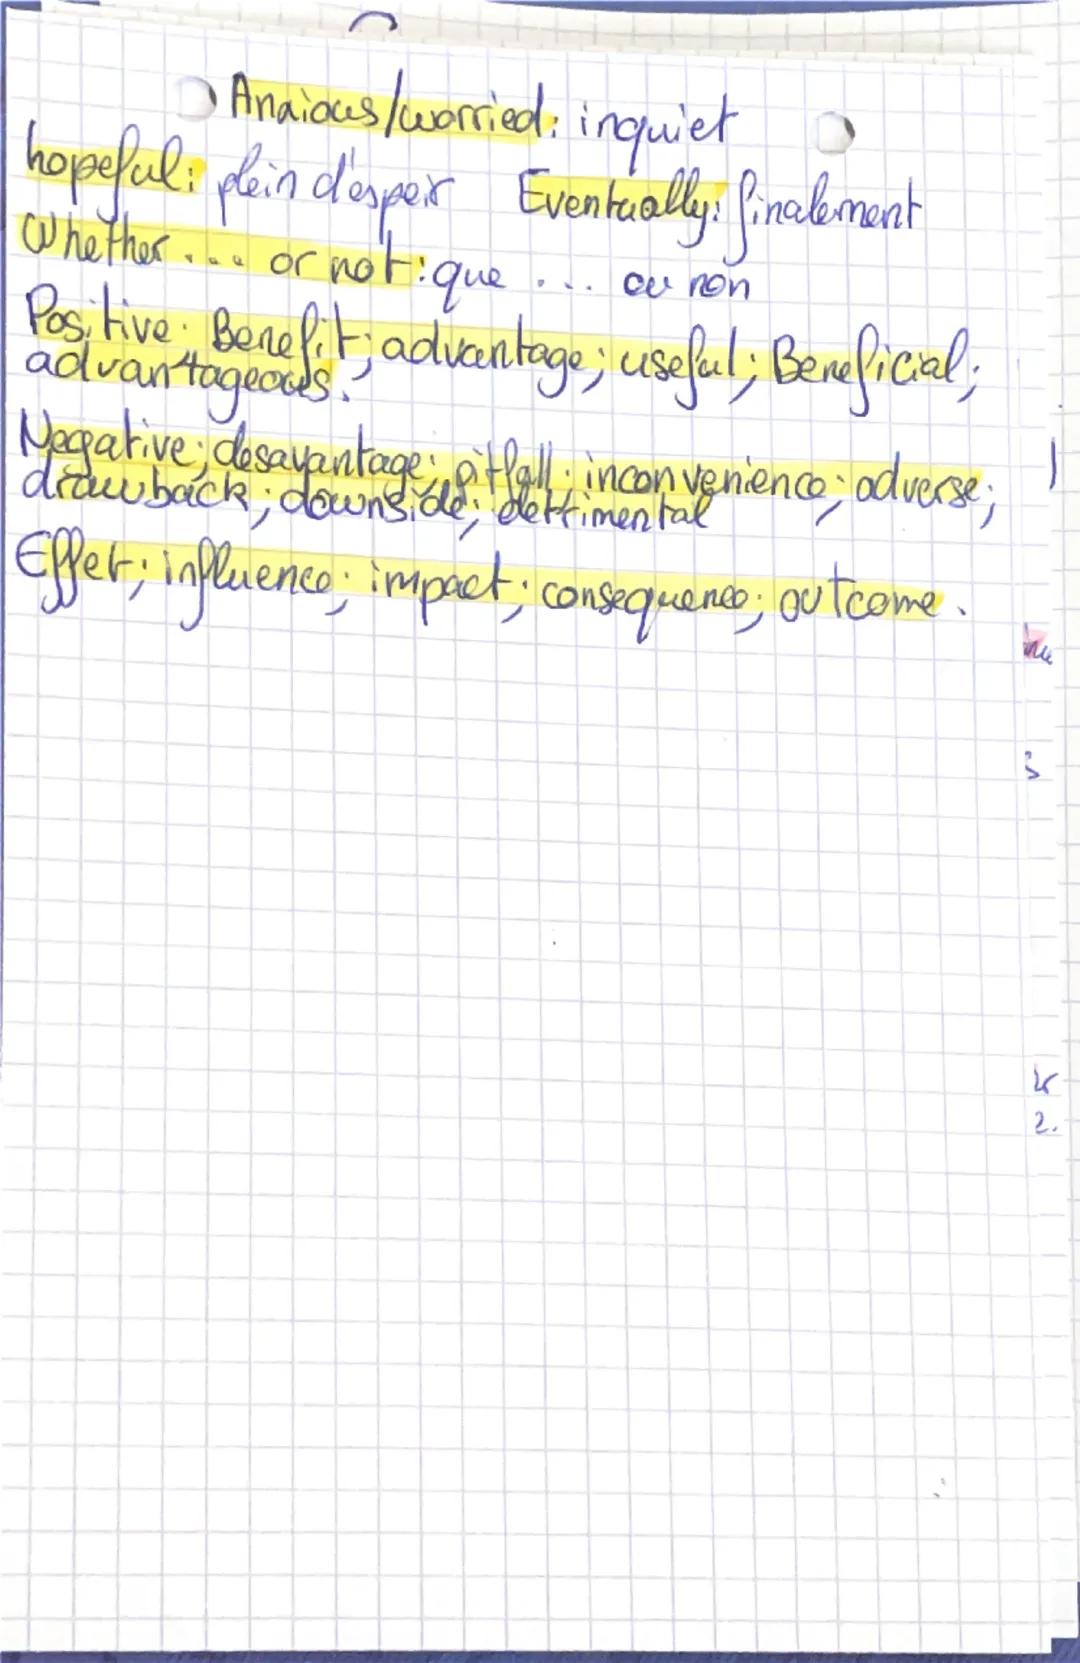 Anxious/worried: inquiet
hopeful: plein d'espoir Eventually: finalement
Whether ... or not: que ... ou non
Positive: Benefit; advantage; useful; Beneficial;
advantageous.
Negative; desavantage; pitfall; inconvenience; adverse;
drawback; downside; dettimental
Effet; influence; impact; consequence; outcome.